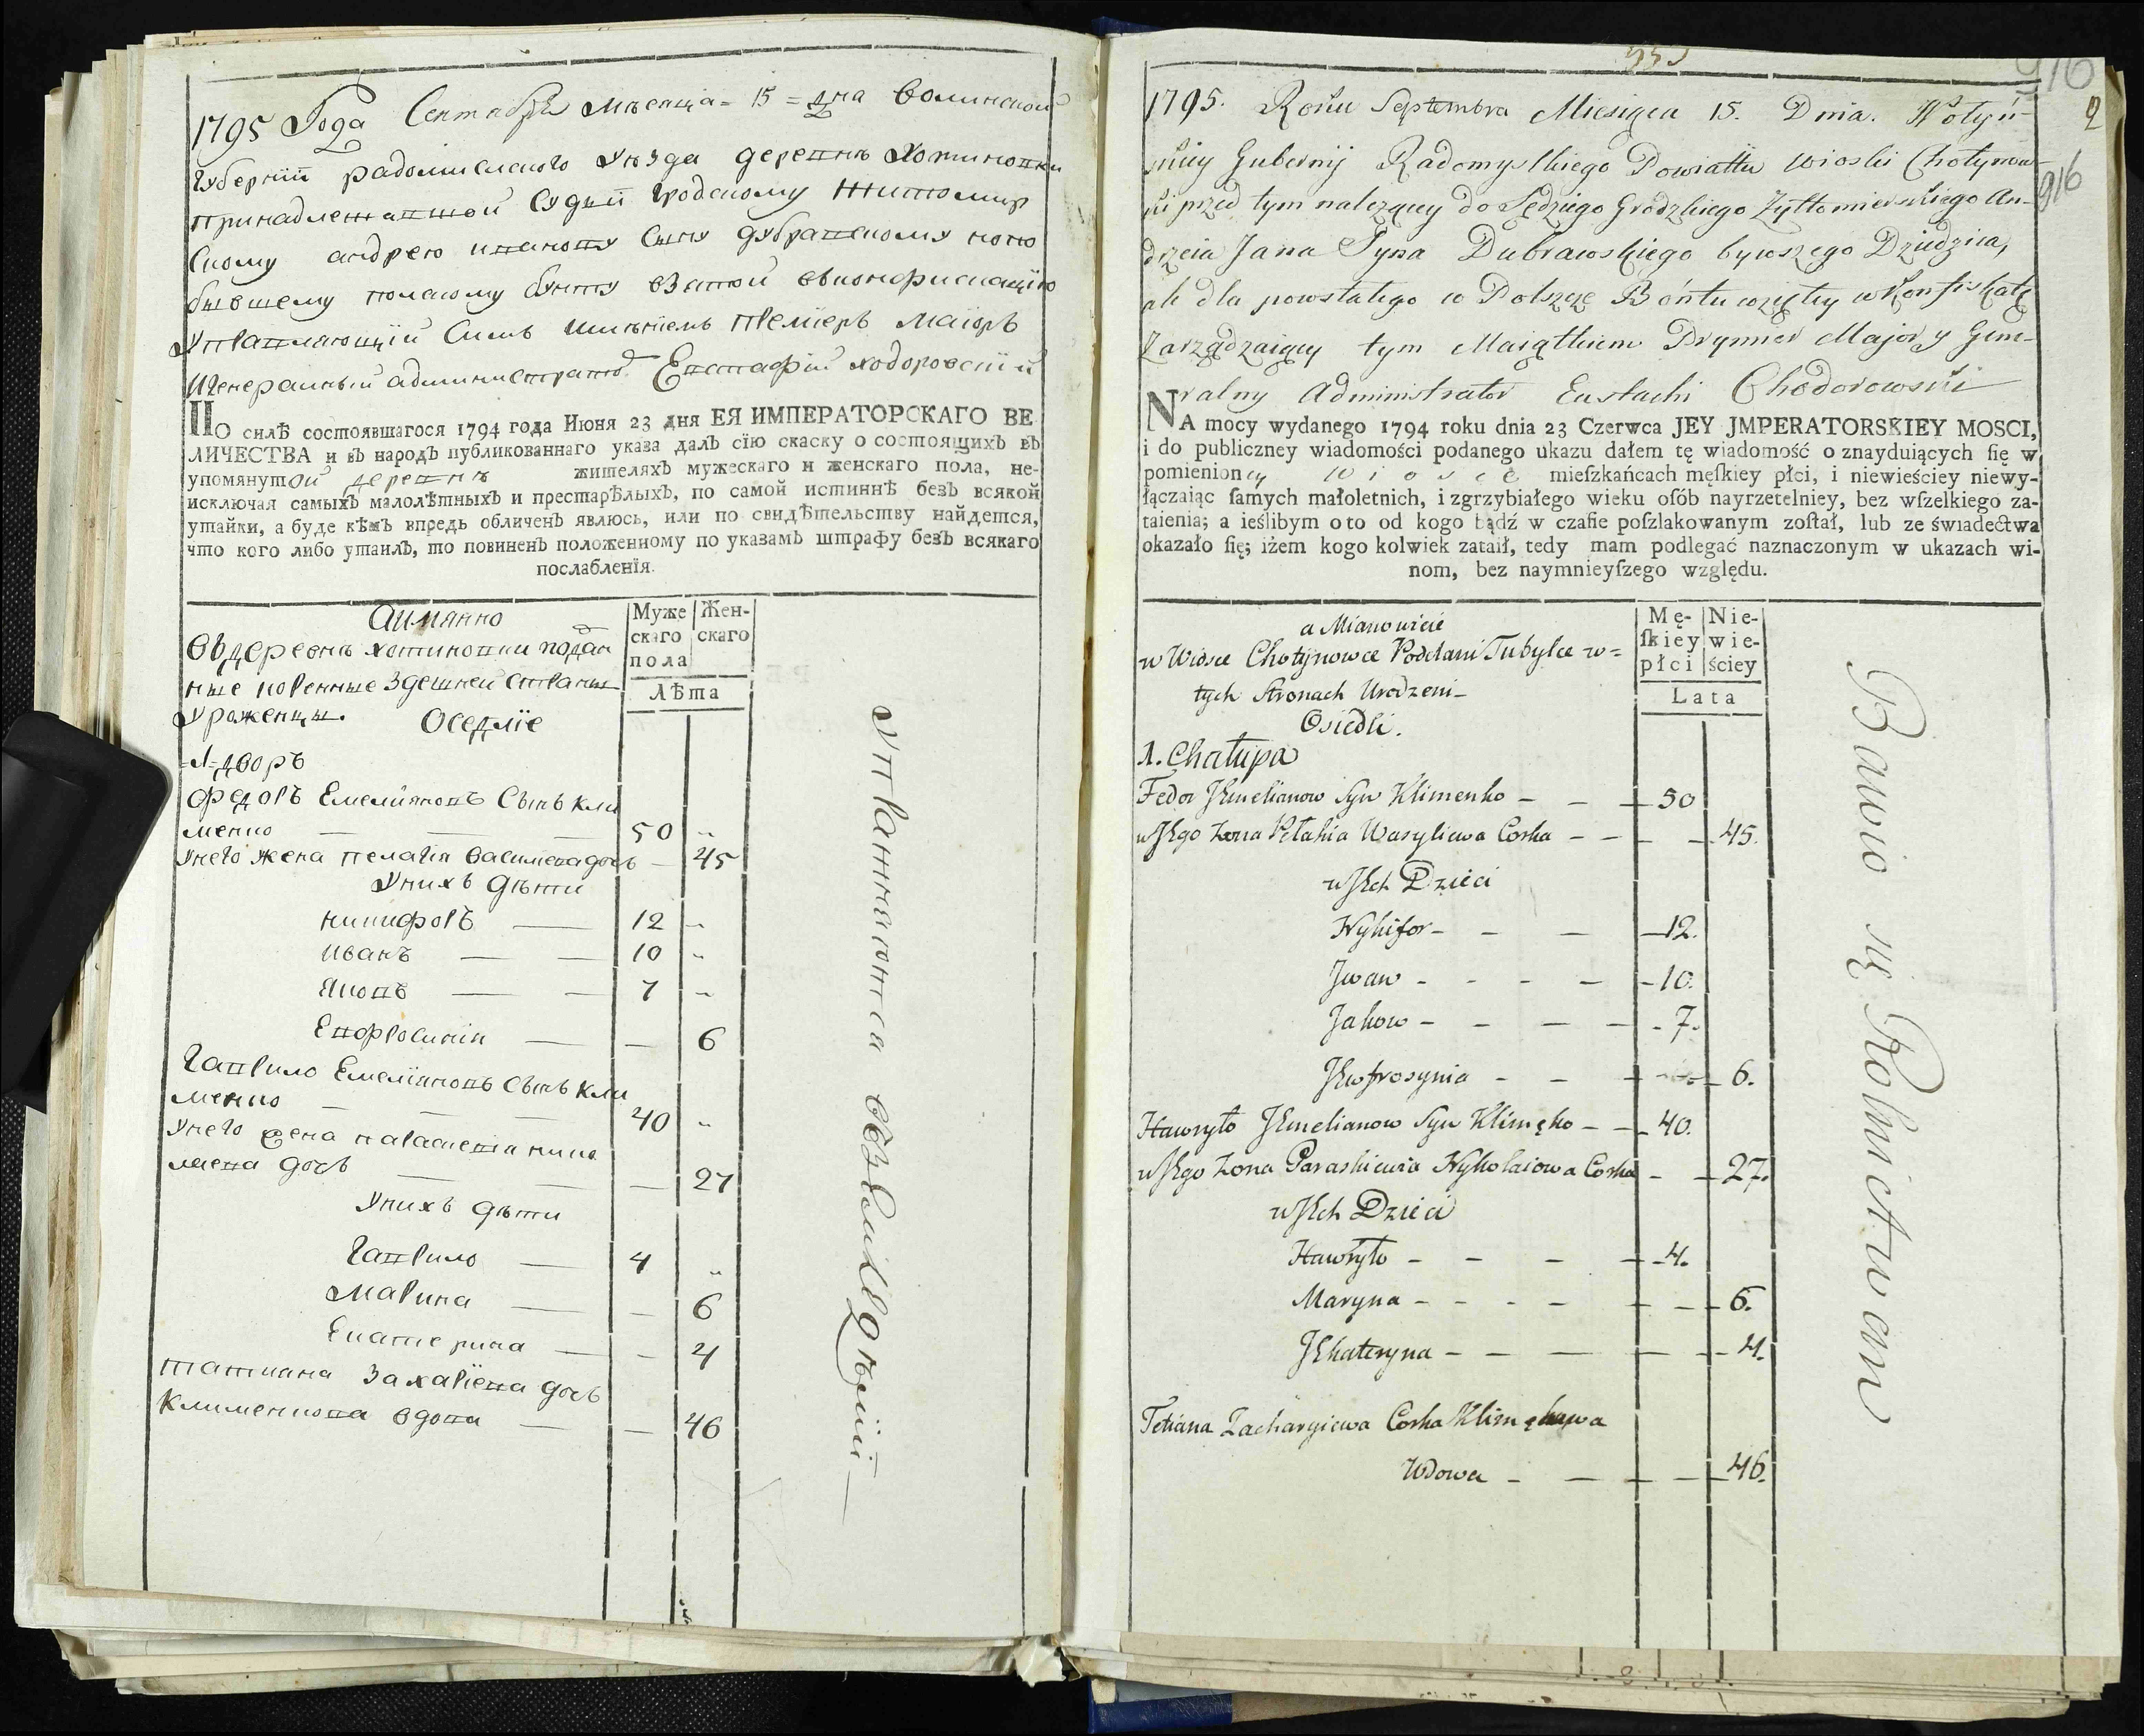 1795 Года Сентября мѣсяца = 15 = дна Волинской
Губернїи радомисльского уѣзда деревнѣ Хотиновки
принадлежавшой Судїи гродскому Житомир
скому андрею иванову Сыну дубравскому
бывшему полскому бунту взятой в конфискацїю
Управляющїй Симъ имѣнїемъ премїеръ маїоръ
И Генеральный администраторъ Евстафїй ходоровскїй
ПО силѢ состоявшагося 1794 года Июня 23 дня ЕЯ ИМПЕРАТОРСКАГО ВЕ
ЛИЧЕСТВА и въ народъ публикованнаго указа далъ сїю скаску о состоящихъ въ
упомянутой деревнѣ жителяхъ мужескаго и женскаго пола, не-
исключая самыхъ малолѣтныхъ и престарѣлыхъ, по самой истиннѣ безъ всякой
утайки, а буде кѣмъ впредь обличенъ явлюсь, или по свидѣтельству найдется,
что кого либо утаилъ, то повиненъ положенному по указамъ штрафу безъ всякаго
послабленїя.
Аимянно
Муже Жен-
скаго скаго
пола
Лѣта
въ деревнѣ хотиновки подан
ные коренные здешней страны
Уроженцы.
Оседлїе
1 дворъ
Федоръ Емелїяновъ Сынъ Кли
менко — — — 50 „
у него жена пелагїя василева дочь — 45
у нихъ дѣти
никифоръ — 12 „
иванъ — — 10 „
Яковъ — — 7 „
Евфросинїя — — 6
гаврило Емелїяновъ Сынъ Кли
менко — — — 40 „
у него жена параскевїя нико
лаева дочь — — — 27
у нихъ дѣти
гаврило — 4 „
марина — — 6
Екатерина — — 4
татиана захарїева дочь
Клименкова вдова — — 46
Упражняются въ земледѣлїи —
935
916
2
916
1795. Roku Septembra Miesiąca 15. Dnia. Wołyń-
skiey Gubernij Radomyslkiego Powiattu wioski Chotynow-
ki przed tym należącey do Sędziego Grodzkiego Żyttomierskiego An-
drzeia Jana Syna Dubrawskiego bywszego Dziedzica,
ale dla powstałego w Polszcze Bóntu wziętey w Konfiskatę
Zarządzaiący tym Maiątkiem Prymier Major y Gene-
ralny Administrator Eustachi Chodorowski
NA mocy wydanego 1794 roku dnia 23 Czerwca JEY JMPERATORSKIEY MOSCI,
i do publiczney wiadomości podanego ukazu dałem tę wiadomość o znayduiących ſię w
pomienioney wiosce mieſzkańcach męſkiey płci, i niewieściey niewy-
łączaiąc ſamych małoletnich, i zgrzybiałego wieku oſób nayrzetelniey, bez wſzelkiego za-
taienia; a ieślibym oto od kogo bądź w czaſie poſzlakowanym zoſtał, lub ze świadectwa
okazało ſię; iżem kogo kolwiek zataił, tedy mam podlegać naznaczonym w ukazach wi-
nom, bez naymnieyſzego względu.
a Mianowicie
Mę- Nie-
ſkiey wie-
płci ściey
Lata
w Wiosce Chotynowce Poddani Tubylce w=
tych Stronach Urodzeni_
Osiedli.
1. Chałupa
Fedor Jemelianow Syn Klimenko — — — 50
u Jego Zona Pełahia Wasyliewa Corka — — — — 45.
u Jich Dzieci
Nykifor — — — — 12.
Jwan — — — — — 10.
Jakow — — — — — 7.
Jewfrosynia — — — — 6.
Hawryło Jemelianow Syn Klimęko — — 40.
u Jego Zona Paraskiewia Nykołaiowa Corka — — 27.
u Jich Dzieci
Hawryło — — — — 4.
Maryna — — — — — — 6.
Jekateryna — — — — — — 4.
Tetiana Zacharyiewa Corka Klimękowa
Wdowa — — — — 46.
Bawio się Rolnictwem